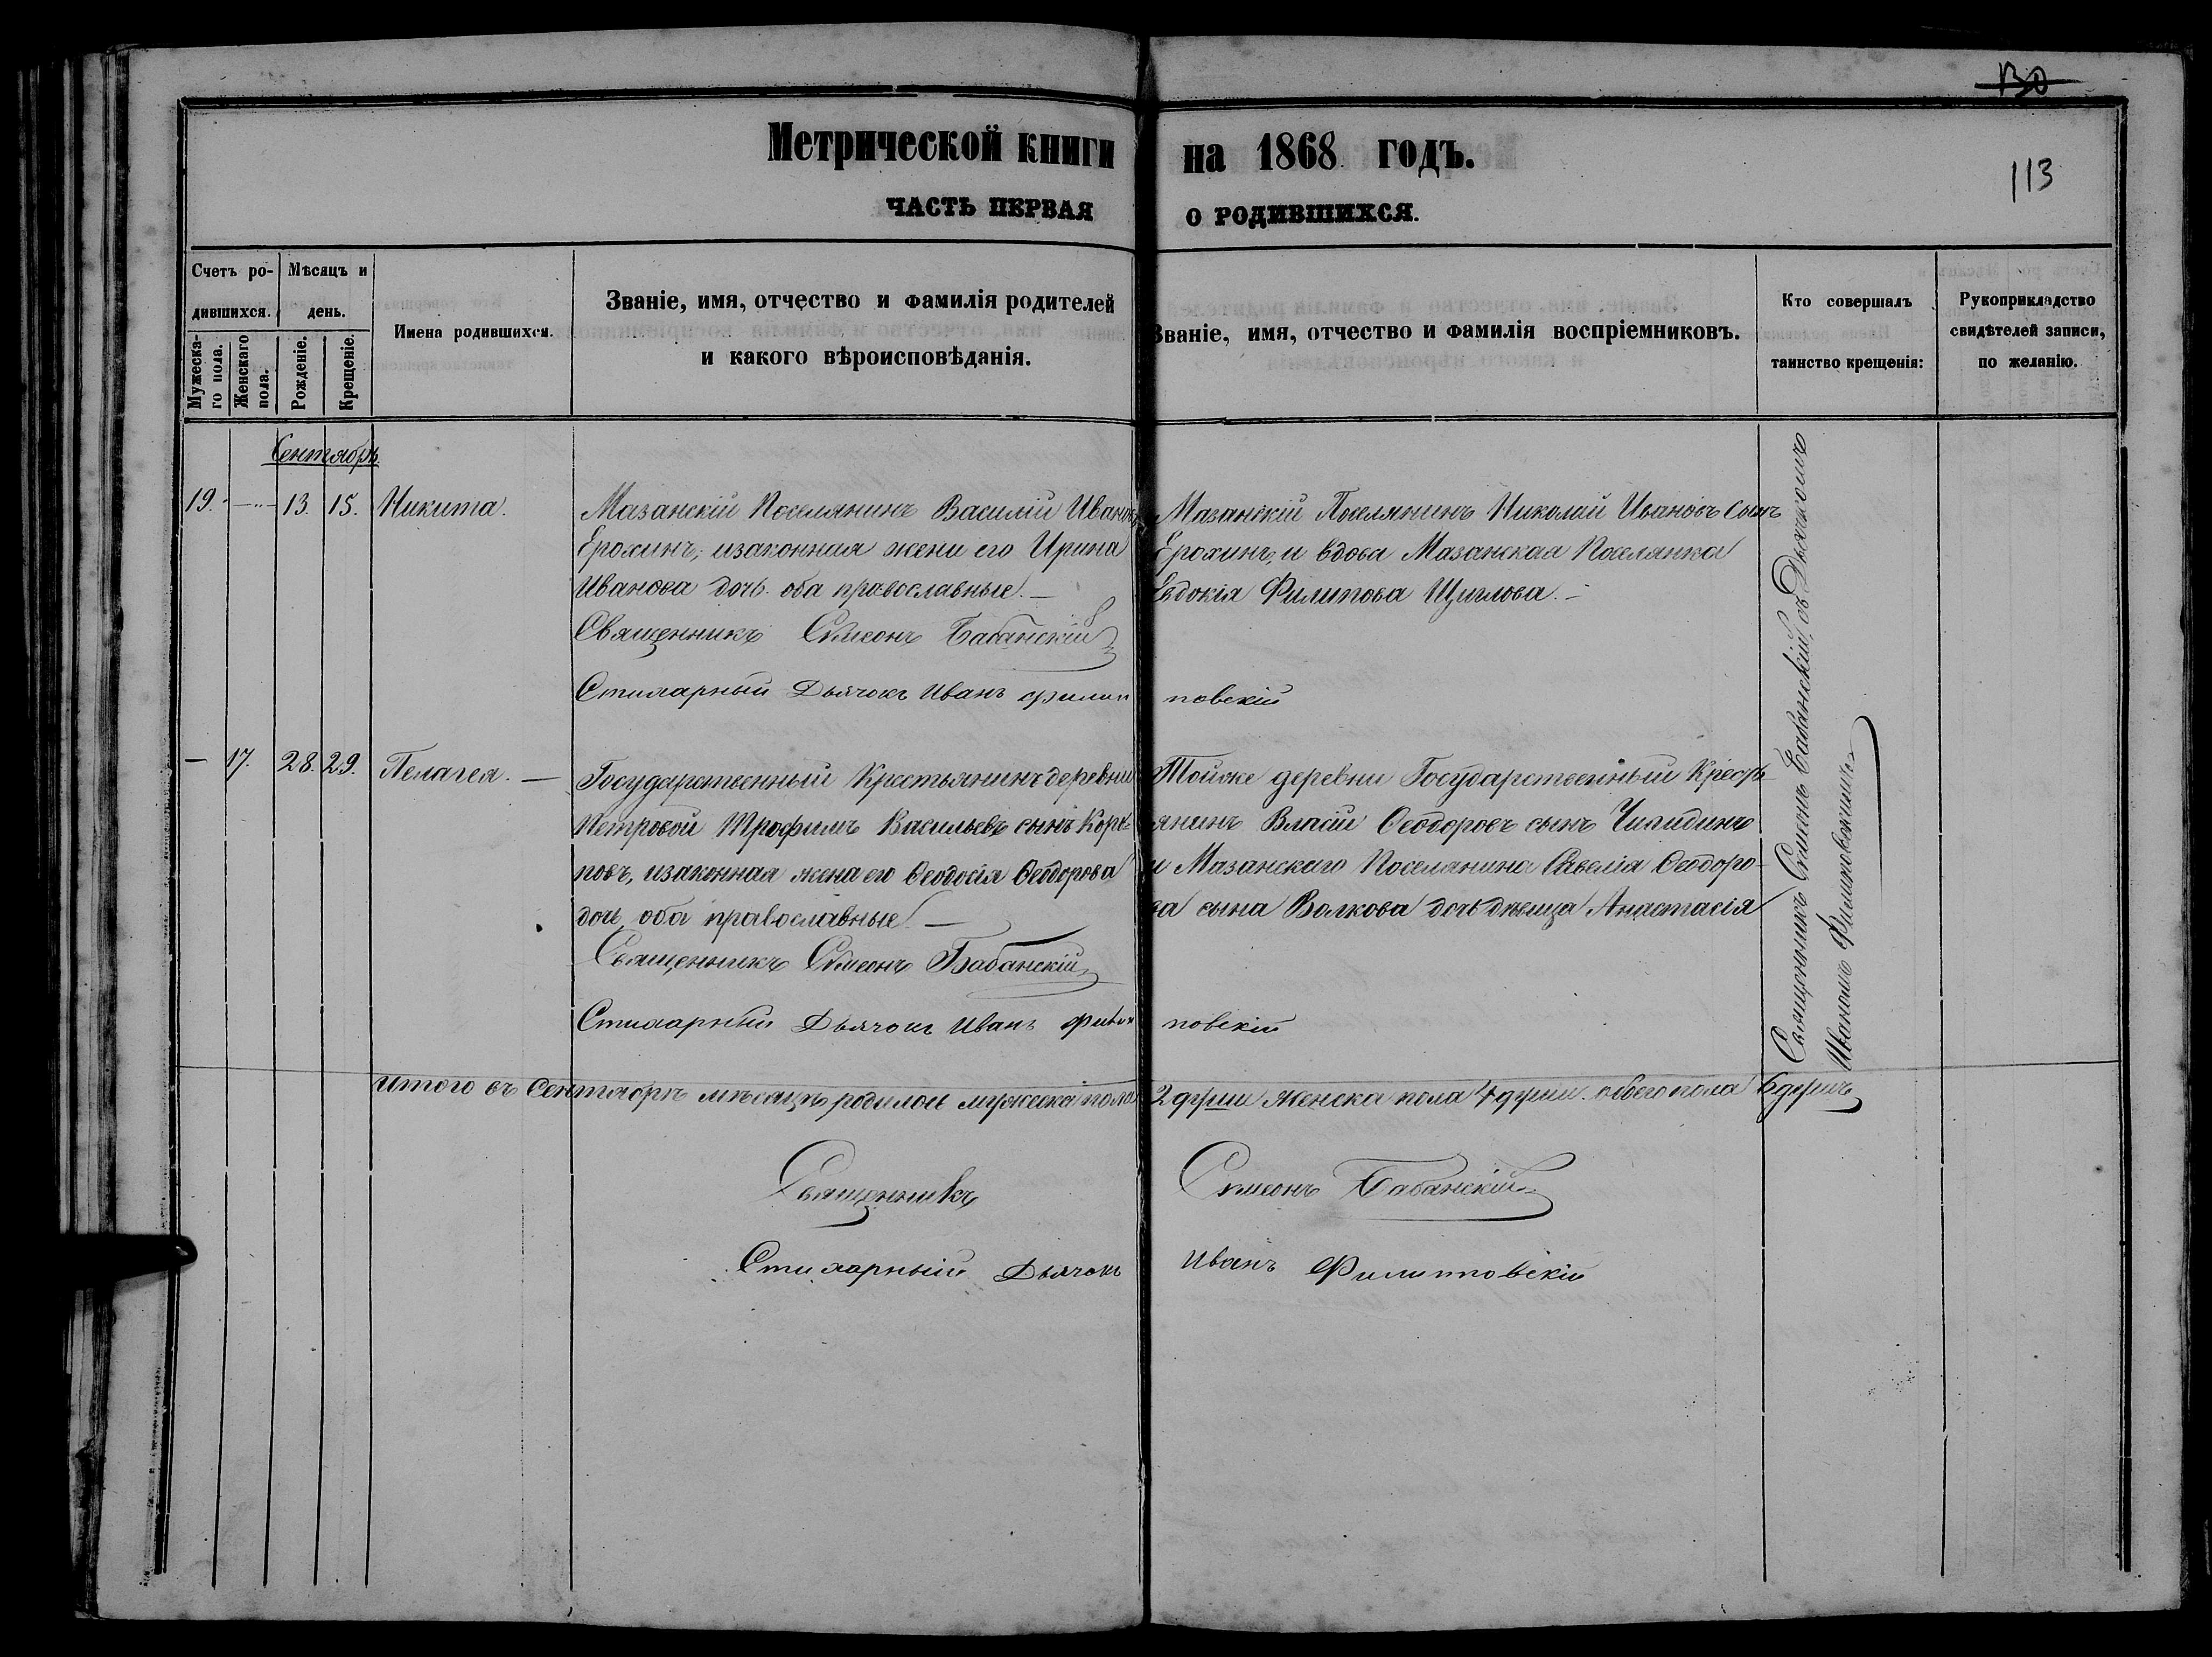 130
Метрической книги на 1868 годъ.
113
ЧАСТЬ ПЕРВАЯ О РОДИВШИХСЯ.
Счетъ родившихся.
Мѣсяцъ и день.
Имена родившихся.
Званіе, имя, отчество и фамилія родителей
и какого вѣроисповѣданія.
Званіе, имя, отчество и фамилія воспріемниковъ.
Кто совершалъ
таинство крещенія:
Рукоприкладство
свидѣтелей записи,
по желанію.
Мужескаго пола.
Женскаго пола.
Рожденіе.
Крещеніе.
Сентябрь
19. — 13. 15. Никита.
Мазанскій Поселянинъ Василій Иванов
Ерохинъ, изаконная жени его Ирина
Иванова дочь оба православные. —
Священникъ Сѵмеонъ Бабанскій
Стихарный Дьячокъ Иванъ Филип повскій
Мазанскій Поселянинъ Николай Ивановъ сынъ
Ерохинъ, и вдова Мазанская Поселянка
Евдокія Филипова Щиглова. —
— 17. 28. 29. Пелагея. —
Государственный Крестьянинъ деревни
Петровой Трофимъ Васильевъ сынъ Кор
повъ, изаконная жена его Ѳеодосія Ѳеодорова
дочь оба православные. —
Священникъ Сѵмеонъ Бабанскій
Стихарный Дьячокъ Иванъ Филип повскій
Тойже деревни Государственный Кресть
янинъ Власій Ѳеодоровъ сынъ
и Мазанскаго Поселянина Савелія Ѳеодоро-
ва сына Волкова дочь дѣвица Анастасія
Священникъ Сѵмеонъ Бабанскій, съ Дьячкомъ
Иваномъ Филиповскимъ
Итого въ Сентябрѣ мѣсяцѣ родилось мужеска пола 2 души женска пола 4 души. обоего пола 6 душъ
Священникъ Сѵмеонъ Бабанскій
Стихарный Дьячокъ Иванъ Филипповскій